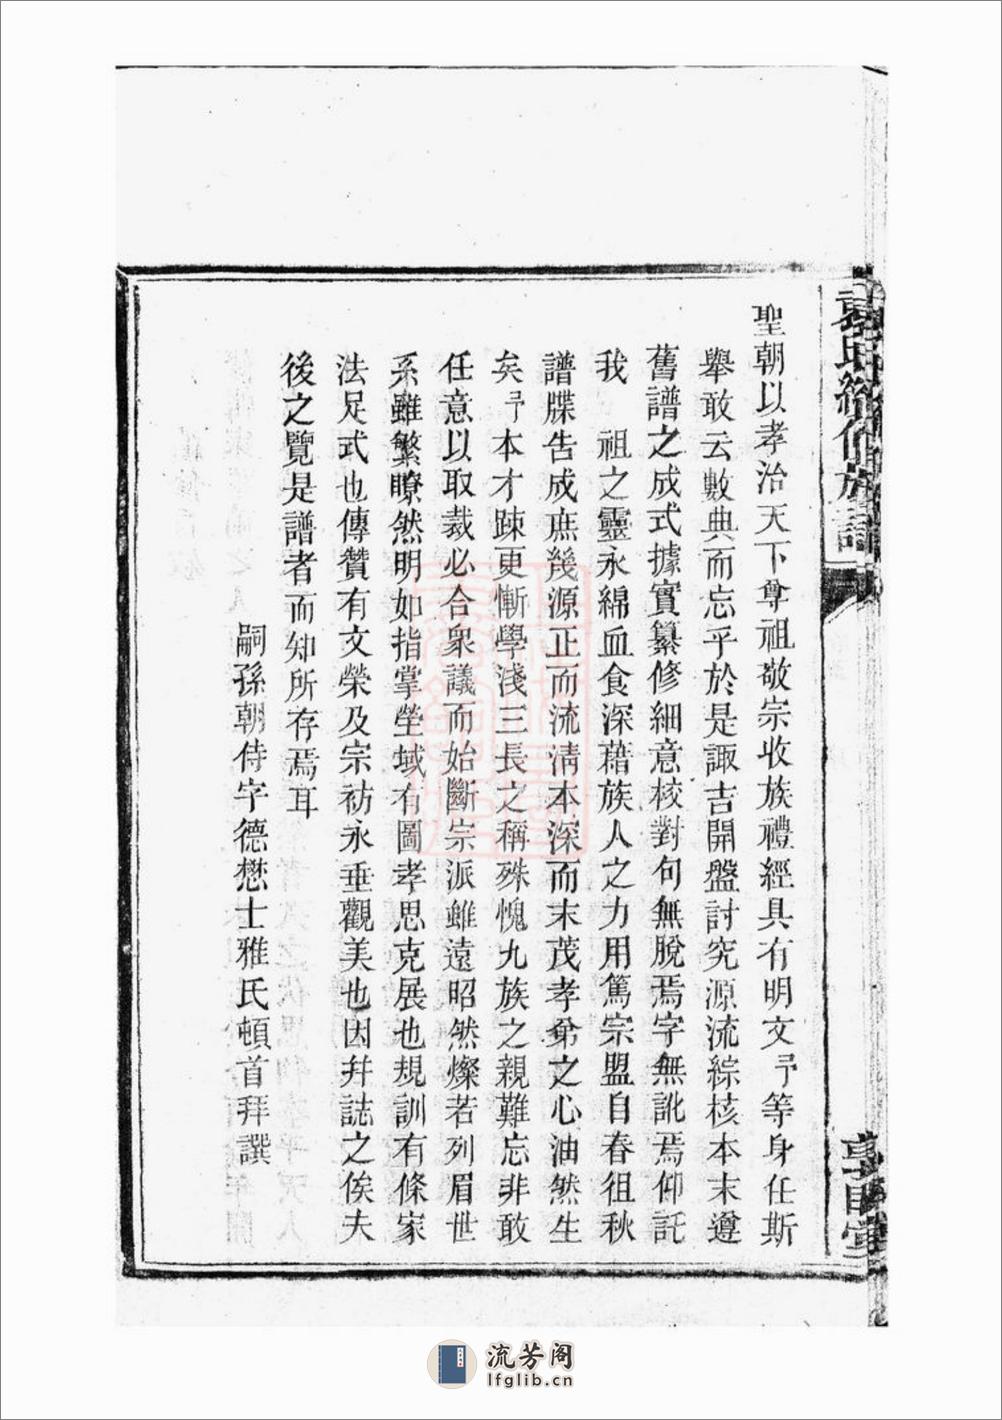 聖朝以孝治天下尊祖敬宗收族禮經具有明文予等身任斯
舉敢云數典而忘乎於是諏吉開盤討究源流綜核本末遵
舊譜之成式據實纂修細意校對句無脫焉字無訛焉仰託
我　祖之靈永綿血食深藉族人之力用篤宗盟自春徂秋
譜牒告成庶幾源正而流清本深而末茂孝弟之心油然生
矣予本才踈更慚學淺三長之稱殊愧九族之親難忘非敢
任意以取裁必合衆議而始斷宗派雖遠昭然燦若列眉世
系雖繁瞭然明如指掌塋域有圖孝思克展也規訓有條家
法足式也傳贊有文榮及宗祊永垂觀美也因幷誌之俟夫
後之覽是譜者而知所存焉耳
嗣孫朝侍字德懋士雅氏頓首拜譔
流芳阁
lfglib.cn